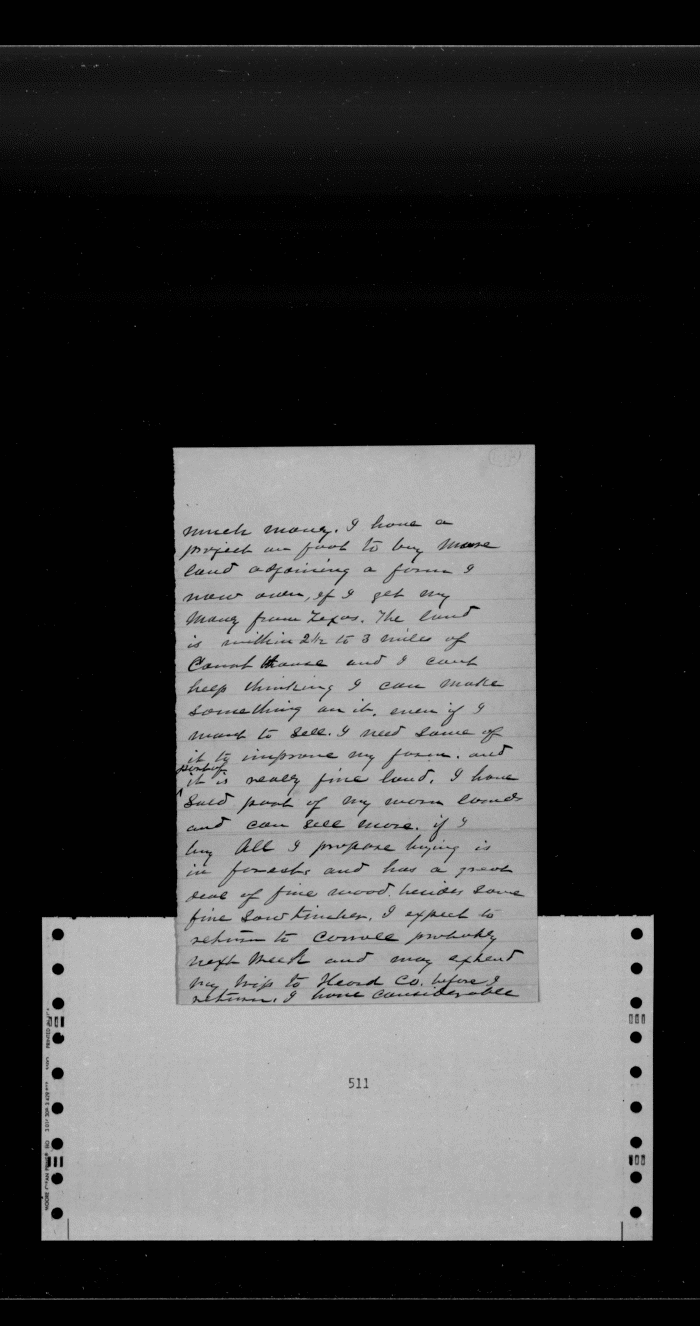 much money. I have a
project on foot to buy more
land adjoining a farm I
now own, if I get my
money from Texas. The land
is within 2½ to 3 miles of
Court House and I cant
help thinking I can make
something on it, even if I
want to sell. I need some of
it to improve my farm. and
part of
it is really fine land. I have
sold part of my worn lands
and can sell more. if I
buy All I propose buying is
in forest, and has a great
deal of fine wood, besides some
fine saw timber. I expect to
return to Carroll probably
next Week and may extend
my trip to Heard Co. before I
return. I have considerable
511